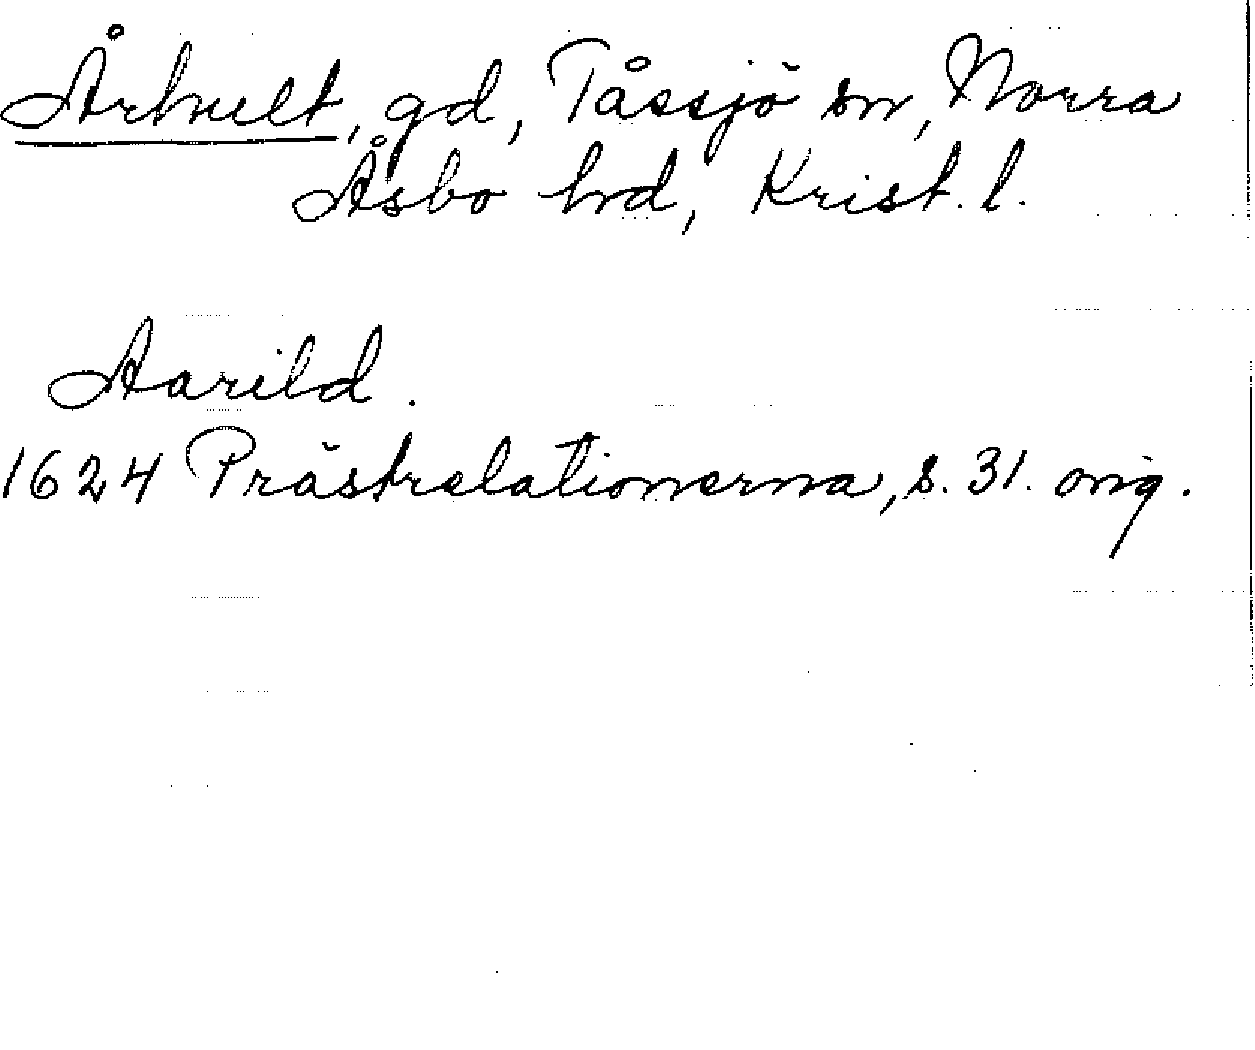 Århult, gd, Tåssjö sn, Norra
Åsbo hrd, Krist. l.
Aarild.
1624 Prästrelationerna, s. 31. orig.